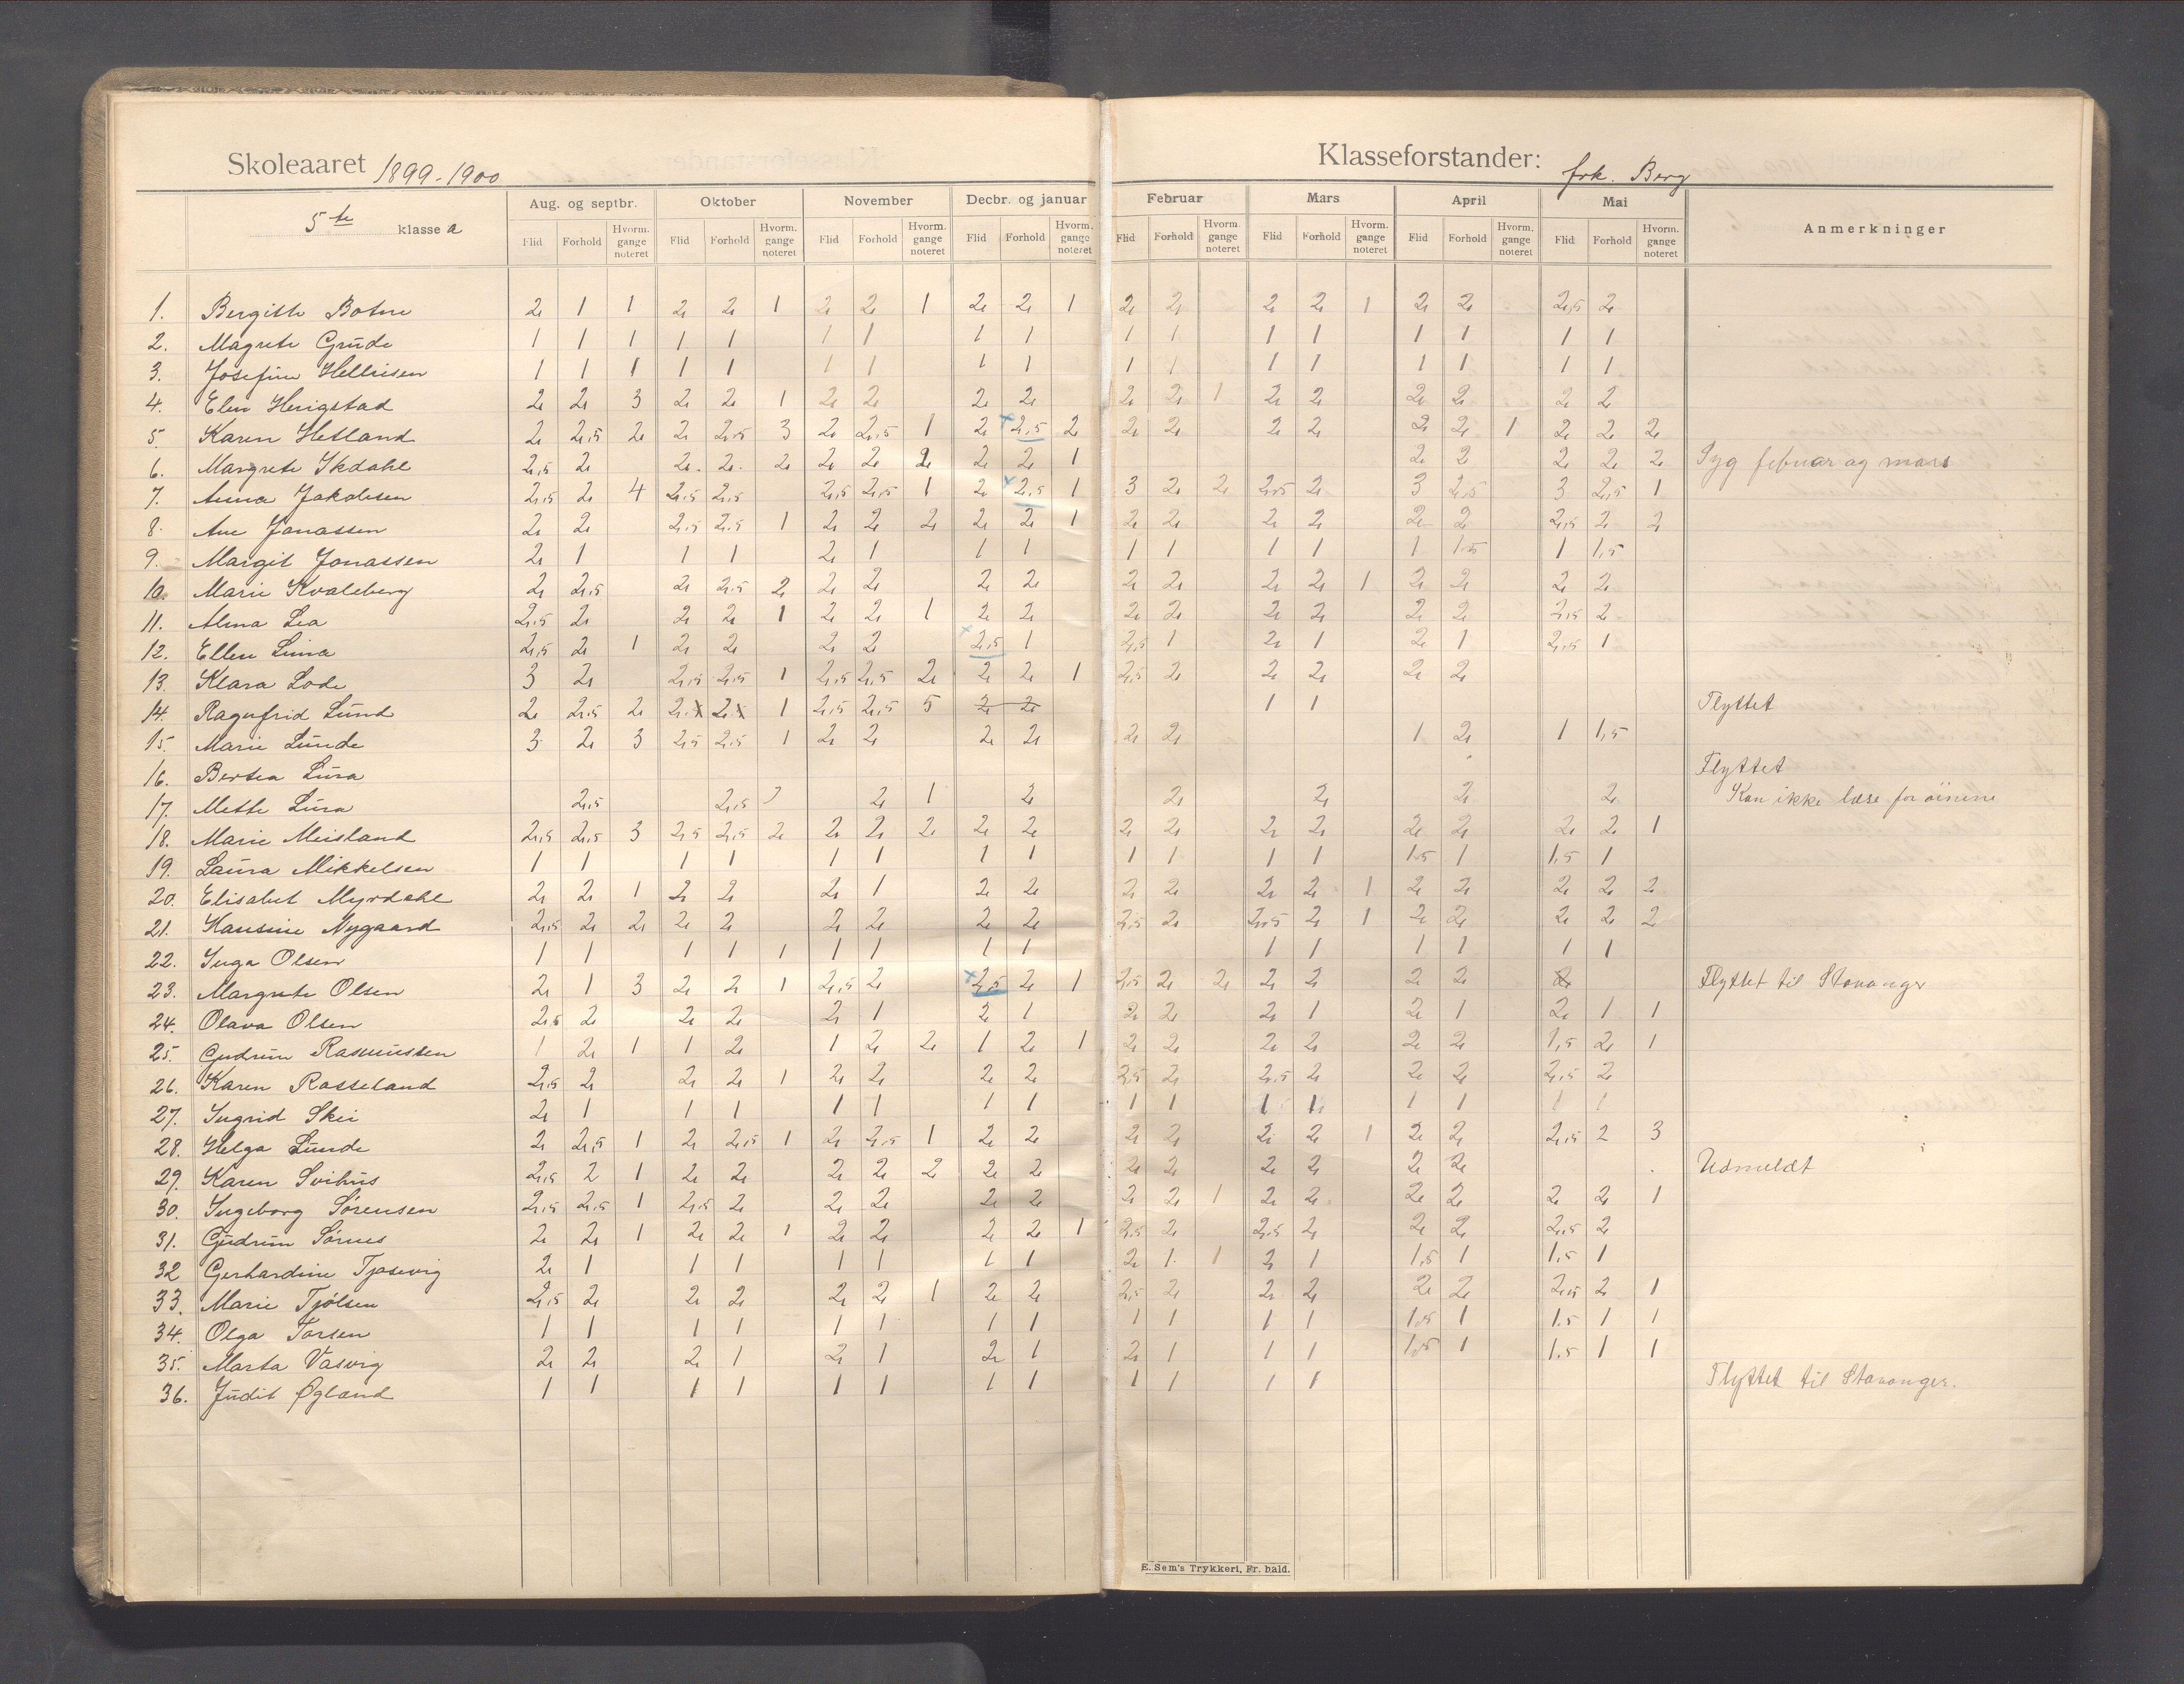 Skoleaaret 1899-1900
Klasseforstander: frk. Berg
5te klasse a
Aug. og septbr. Oktober November Decbr. og januar Februar Mars April Mai Anmerkninger
Flid Forhold Hvorm. gange noteret Flid Forhold Hvorm. gange noteret Flid Forhold Hvorm. gange noteret Flid Forhold Hvorm. gange noteret Flid Forhold Hvorm. gange noteret Flid Forhold Hvorm. gange noteret Flid Forhold Hvorm. gange noteret Flid Forhold Hvorm. gange noteret
1. Bergitte Botne 2 1 1 2 2 1 2 2 1 2 2 1 2 2 2 2 1 2 2 2,5 2
2. Magrete Grude 1 1 1 1 1 1 1 1 1 1 1 1 1 1 1 1 1
3. Josefine Hellrisen 1 1 1 1 1 1 1 1 1 1 1 1 1 1 1 1 1
4. Elen Herigstad 2 2 3 2 2 1 2 2 2 2 2 2 1 2 2 2 2 2 2
5. Karen Hetland 2 2,5 2 2 2,5 3 2 2,5 1 2 2,5 2 2 2 2 2 2 2 1 2 2 2
6. Margrete Ikdahl 2,5 2 2 2 2 2 2 2 2 2 1 2 2 2 2 2 Syg februar og mars
7. Anna Jakobsen 2,5 2 4 2,5 2,5 2,5 2,5 1 2 2,5 1 3 2 2 2,5 2 3 2,5 3 2,5 1
8. Ane Jonassen 2 2 2,5 2,5 1 2 2 2 2 2 1 2 2 2 2 2 2 2,5 2 2
9. Margit Jonassen 2 1 1 1 2 1 1 1 1 1 1 1 1 1,5 1 1,5
10. Marie Kvaleberg 2 2,5 2 2,5 2 2 2 2 2 2 2 2 2 1 2 2 2 2
11. Alma Lea 2,5 2 2 2 1 2 2 1 2 2 2 2 2 2 2 2 2,5 2
12. Ellen Lima 2,5 2 1 2 2 2 2 2,5 1 2,5 1 2 1 2 1 2,5 1
13. Klara Lode 3 2 2,5 2,5 1 2,5 2,5 2 2 2 1 2,5 2 2 2 2 2
14. Ragnfrid Lund 2 2,5 2 2 2 1 2,5 2,5 5 2 2 1 1 Flyttet
15. Marie Lunde 3 2 3 2,5 2,5 1 2 2 2 2 2 2 1 2 1 1,5
16. Bertea Lura Flyttet
17. Mette Lura 2,5 2,5 3 2 1 2 2 2 2 2 Kan ikke læse for öinene
18. Marie Meisland 2,5 2,5 3 2,5 2,5 2 2 2 2 2 2 2 2 2 2 2 2 2 2 1
19. Laura Mikkelsen 1 1 1 1 1 1 1 1 1 1 1 1 1,5 1 1,5 1
20. Elisabet Myrdahl 2 2 1 2 2 2 1 2 2 2 2 2 2 1 2 2 2 2 2
21. Hansine Nygaard 2,5 2 2 2 2 2 2 2 2 2,5 2 2,5 2 1 2 2 2 2 2
22. Inga Olsen 1 1 1 1 1 1 1 1 1 1 1 1 1 1 1
23. Margrete Olsen 2 1 3 2 2 1 2,5 2 2,5 2 1 2,5 2 2 2 2 2 2 2 Flyttet til Stavanger
24. Olava Olsen 2,5 2 2 2 2 1 2 1 2 2 2 1 2 1 2 1 1
25. Gudrun Rasmussen 1 2 1 1 2 1 2 2 1 2 1 2 2 2 2 2 2 1,5 2 1
26. Karen Rosseland 2,5 2 2 2 1 2 2 2 2 2,5 2 2,5 2 2 2 2,5 2
27. Ingrid Skei 2 1 1 1 1 1 1 1 1 1 1 1 1 1 1 1
28. Helga Lunde 2 2,5 1 2 2,5 1 2 2,5 1 2 2 2 2 2 2 1 2 2 2,5 2 3
29. Karen Svihus 2,5 2 1 2 2 2 2 2 2 2 2 2 2 2 2 2 Udmeldt
30. Ingeborg Sørensen 2,5 2,5 1 2,5 2 2 2 2 2 2 2 1 2 2 2 2 2 2 1
31. Gudrun Sørnes 2 2 1 2 2 1 2 2 2 2 1 2,5 2 2,5 2 2 2 2,5 2
32 Gerhardine Tjosevig 2 1 1 1 1 1 1 1 2 1 1 2 1 1,5 1 1,5 1
33. Marie Tjölsen 2,5 2 2 2 2 2 1 2 2 2,5 2 2 2 2 2 2,5 2 1
34. Olga Torsen 1 1 1 1 1 1 1 1 1 1 1 1 1,5 1 1,5 1 1
35. Marta Vasvig 2 2 2 1 2 1 2 1 2 1 1 1 1,5 1 1,5 1 1
36. Judit Øgland 1 1 1 1 1 1 1 1 1 1 1 1 Flyttet til Stavanger.
E. Sem's Trykkeri, Fr.hald.